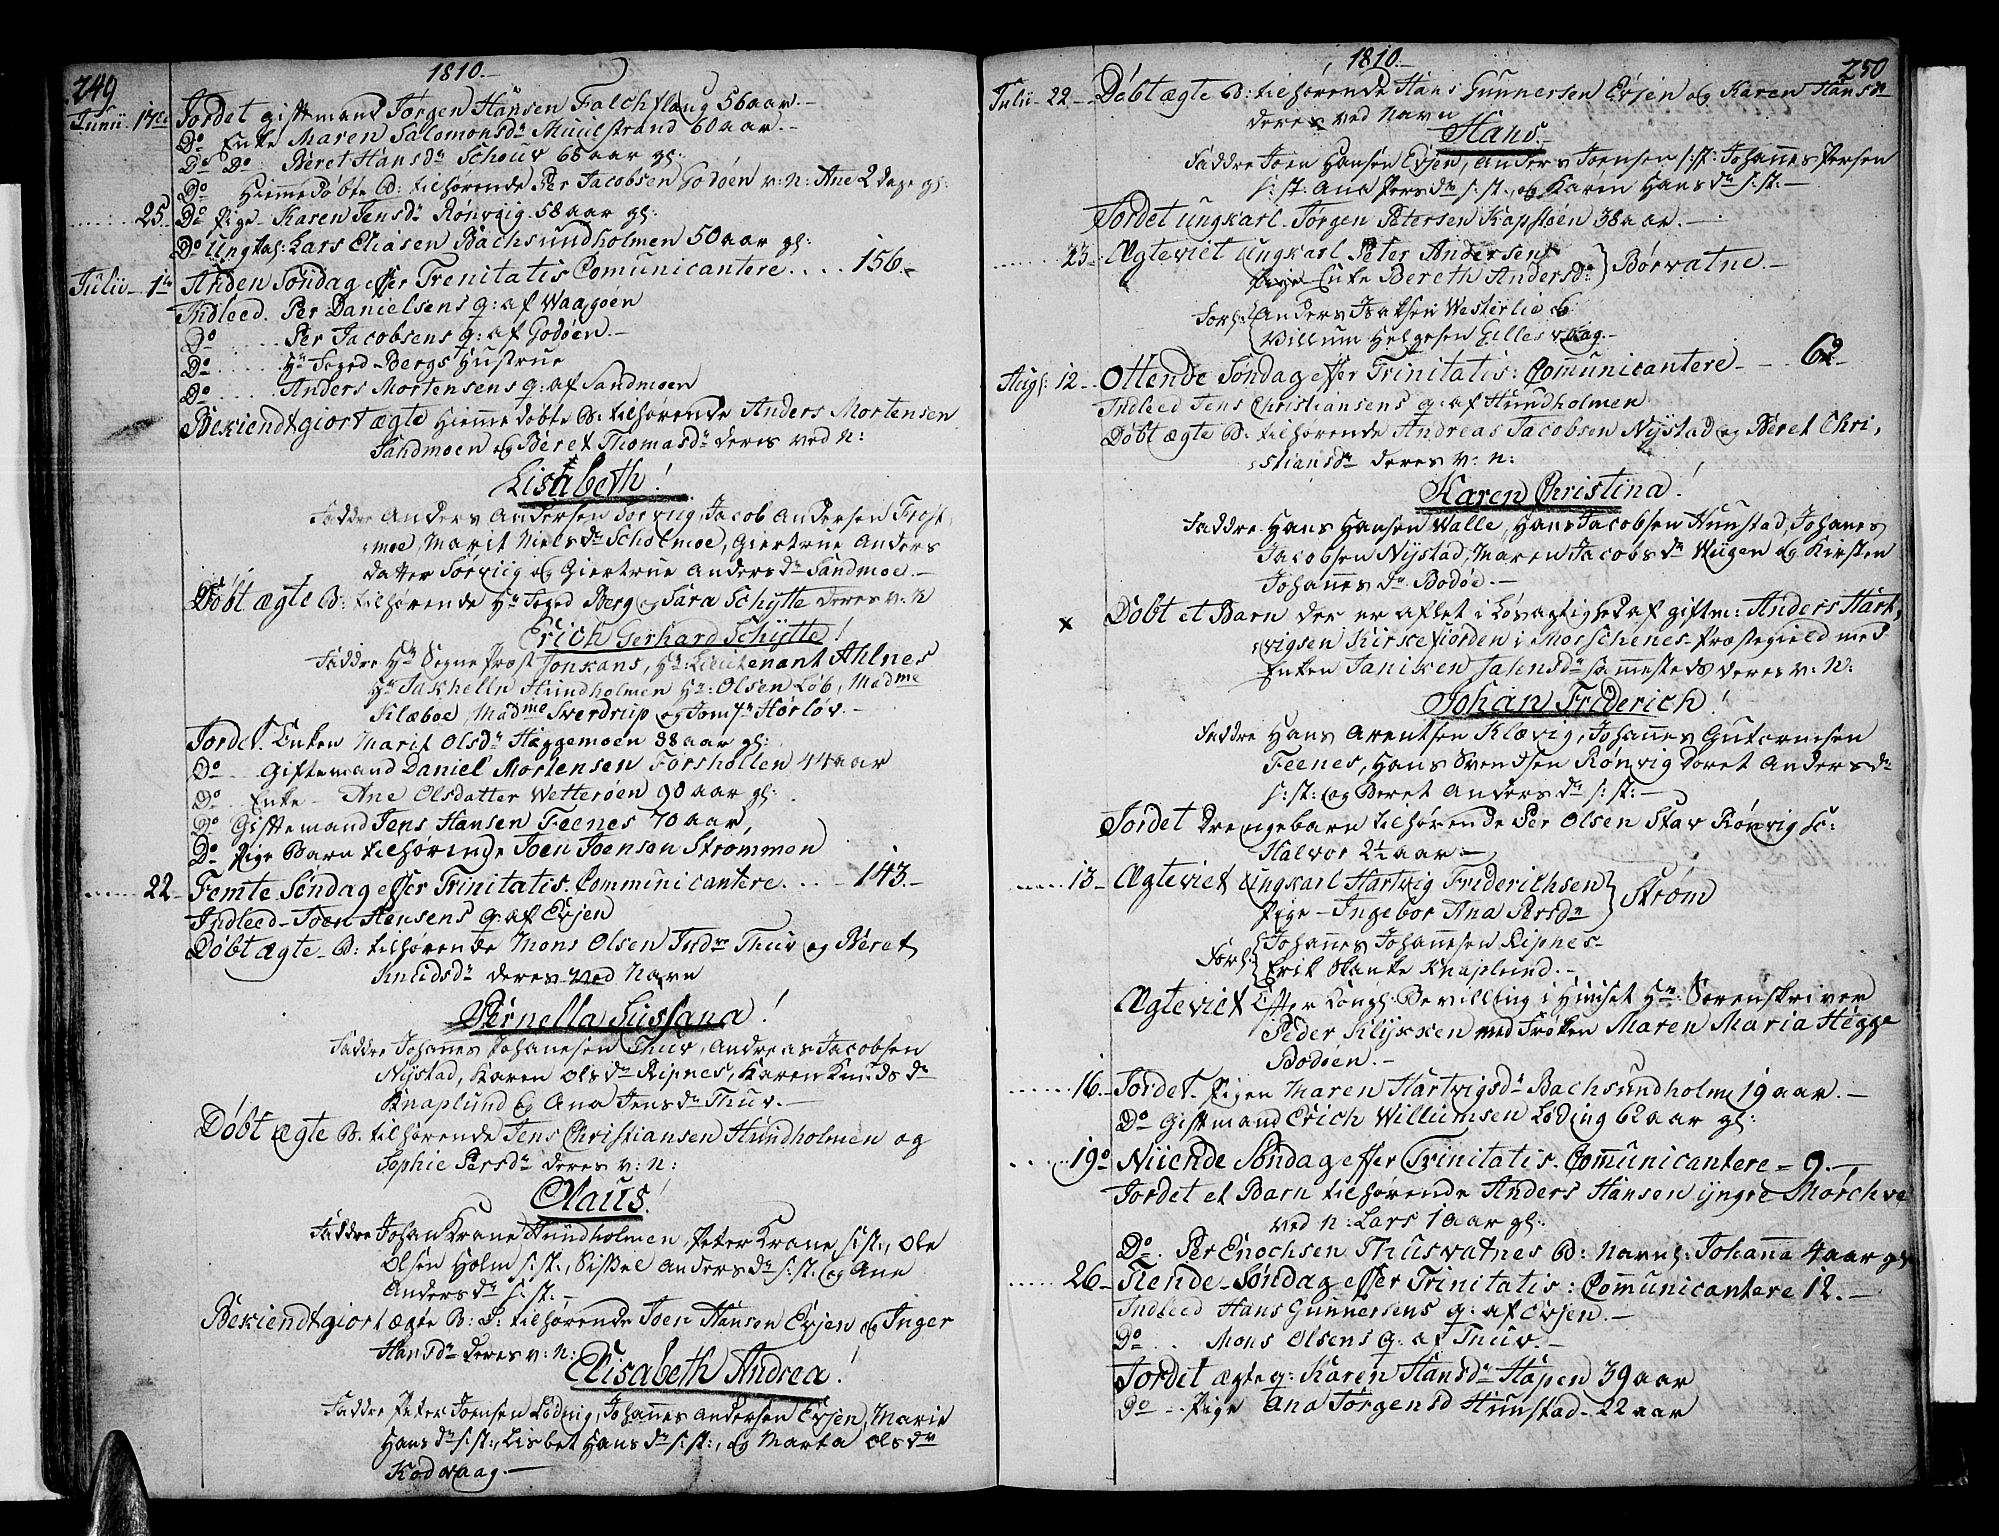 249
1810.
Junii 17de Jordet giftmand Jørgen Hansen Falchflaug 56 aar.
Do Enke Maren Salomonsdr Muulstrand 60 aar.
Do Do Beret Hansdr Schouv 68 aar gl:
Do Hiemedøbte B: tilhørende Per Jacobsen Godøen v: n: Ane 2 dage gl:
25 Do Pige Karen Jensdr Rønvig 58 aar gl:
Do Ungkal: Lars Eliasen Bachsundholmen 50 aar gl:
Julii 1te Anden Søndag efter Trenitatis Comunicantere .... 156.
Indleed. Per Danielsens q: af Waagøen
Do ..... Per Jacobsens q: af Godøen
Do ..... Hr Foged Bergs Hustrue
Do ..... Anders Mortensens q: af Sandmoen
Bekiendtgiort ægte Hiemmedøbte B: tilhørende Anders Mortensen
Sandmoen og Beret Thomasdr deres ved N:
Lisabeth!
Faddre Anders Andersen Sørvig, Jacob Andersen Frost,
moe, Marit Nielsdr Scholmoe, Giertrue Anders
datter Sørviig og Giertrue Andersdr Sandmoe.
Døbt ægte B: tilhørende Hr Foged Berg og Sara Schytte deres v: n
Erich Gerhard Schytte!
Faddre Hr Sogne Præst Jonkans, Hr: Lieutenant Ahlnes
Hr Jakhelln Hundholmen Hr: Olsen Løb, Madme
Klæboe, Madme Sverdrup og Jomfr Horløv.
Jordet. Enken Marit Olsdr Heggemoen 88 aar gl:
Do ... Giftemand Daniel Mortensen Forshollen 44 aar
Do .. Enke Ane Olsdatter Wetterøen 90 aar gl:
Do Giftemand Jens Hansen Feenes 70 aar,
Do Pige Barn tilhørende Joen Joensen Strømmen
22 Femte Søndag efter Trinitatis. Communicantere .... 143.
Indleed Joen Hansens q: af Evjen
Døbt ægte B: tilhørende Mons Olsen Indre Thuv og Beret
Knudsdr deres ved Navn
Pernella Sussana!
Faddre Johannes Johanesen Thuv, Andreas Jacobsen
Nystad, Karen Olsdr Ripnes, Karen Knudsdr
Knaplund og Ana Jensdr Thuv.
Døbt ægte B. tilhørende Jens Christiansen Hundholmen og
Sophie Persdr deres v: n:
Claus!
Faddre Johan Krane Hundholmen, Peter Krane s: st:, Ole
Olsen Holm s: st:, Sissel Andersdr s: st: og Ane
Andersdr s: st:
Bekiendtgiort ægte B: D: tilhørende Joen Hansen Evjen og Inger
Hansdr deres v: n:
Elisabeth Andrea!
Faddre Peter Joensen Lødnig, Johannes Andersen Evjen, Marie
Hansdr s: st:, Lisbet Hansdr s: st:, og Marta Olsdr
Kodvaag.
1810.
250
Julii 22 Døbt ægte B: tilhørende Hans Gunnersen Evjen og Karen Hansdr
deres ved Navn
Hans.
Faddre Joen Hansen Evjen, Anders Joensen s: st: Johannes Persen
s: st: Ana Persdr s: st., og Karen Hansdr s: st:
Jordet ungkarl Jørgen Petersen Kapstøen 38 aar.
23 Ægteviet Ungkarl Peter Andersen
Enke Bereth Andersdr } Børvatne.
Forl: { Anders Isaksen Westerlie og
Villum Helgesen Gillesvaag.
Augl: 12 Ottende Søndag efter Trinitatis: Comunicantere 62
Indleed Jens Christiansens q: af Hundholmen
Døbt ægte B: tilhørende Andreas Jacobsen Nystad og Beret Chri,
stiansdr deres v: n:
Karen Christina!
Faddre Hans Hansen Walle, Hans Jacobsen Hunstad, Johanes
Jacobsen Nystad, Maren Jacobsdr Wiigen og Kirsten
Johannesdr Bodøe.
x Døbt et Barn der er aflet i Løsagtighed af giftm: Anders Hart,
vigsen Kirkefiorden i Moschenes Præstegield med
Enken Taniken Jahnsdr sammesteds deres v: N:
Johan Friderich!
Faddre Hans Arentsen Kløvig, Johannes Gutormsen
Feenes, Hans Svendsen Rønvig Doret Andersdr
s: st: og Beret Andersdr s: st:
Jordet Drengebarn tilhørende Per Olsen Stav Rønvig
Halvor 2½ aar
13 Ægteviet Ungkarl Hartvig Friderichsen
Pige Ingebor Ana Persdr } Strøm
Forl: { Johannes Johannesen Ripnes
Erik Hanke Knaplund.
Ægteviet Efter Kongl: Bevilling i Huuset Hr: Sorenskriver
Peder Klykken med Frøken Maren Maria Hegge
Bodøen.
16 Jordet. Pigen Maren Hartvigsdr Bachsundholm 19 aar.
Do Giftmand Erich Willumsen Løding 62 aar gl:
19 Niiende Søndag efter Trinitatis. Comunicantere 9.
Jordet et Barn tilhørende Anders Hansen yngre Mørchve
ved n: Lars 1 aar gl:
Do. Per Enochsen Thusvatnes B: navnl: Johanna 4 aar gl
26 Tiende Søndag efter Trinitatis: Communicantere 12.
Indleed Hans Gunnersens q: af Evjen.
Do .. Mons Olsens q: af Thuv.
Jordet ægte q: Karen Hansdr Hopen 39 aar
Do .. Pige Ana Jørgensd Hunstad 22 aar